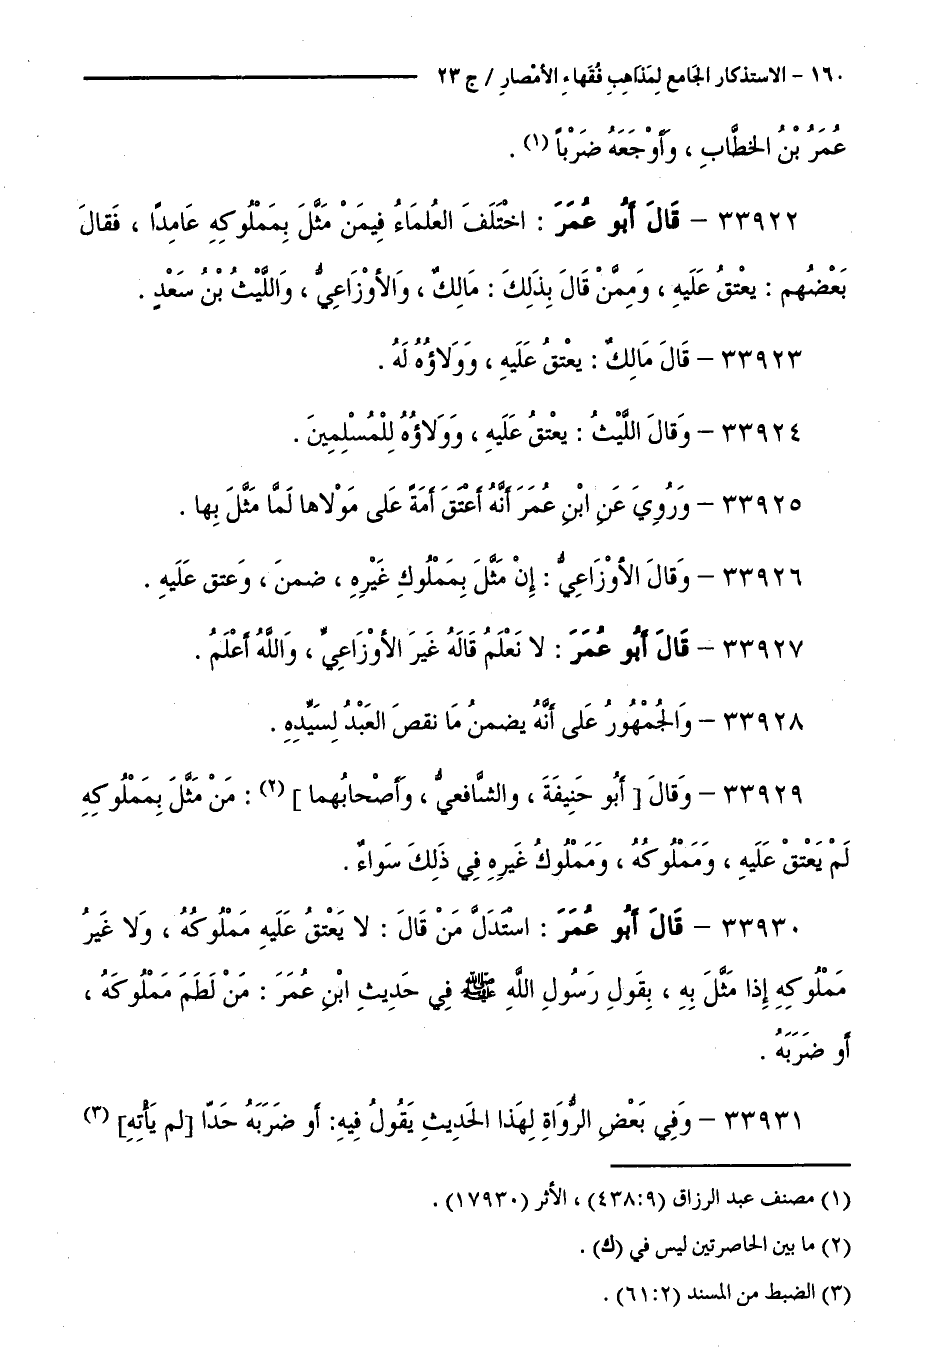 ١٦٠ - الاستذكار الجَامع لِمَذَاهِبِ فُقَهاءِ الأمْصارِ / ج ٢٣
عُمَرُ بْنُ الخطَّابِ ، وَأَوْجَعَهُ ضَرْبًا (١) .
٣٣٩٢٢ - قَالَ أَبُو عُمَرَ : اخْتَلَفَ العُلمَاءُ فِيمَنْ مَثَّلَ بِمَمْلُوكِهِ عَامِدًا ، فَقالَ
بَعْضُهم : يعْتقُ عَلَيهِ ، وَمِمَّنْ قَالَ بِذَلِكَ : مَالِكٌ ، وَالأوْزَاعِيُّ ، وَاللَّيْثُ بْنُ سَعْدٍ .
٣٣٩٢٣ - قَالَ مَالِكٌ : يعْتقُ عَلَيهِ ، وَوَلاؤُهُ لَهُ .
٣٣٩٢٤ - وَقَالَ اللَّيْثُ : يعْتقُ عَلَيهِ ، وَوَلاؤُهُ لِلْمُسْلِمِينَ .
٣٣٩٢٥ - وَرُوِيَ عَنِ ابْنِ عُمَرَ أَنَّهُ أَعْتَقَ أَمَةً عَلى مَوْلاها لَمَّا مَثَّلَ بِها .
٣٣٩٢٦ - وَقَالَ الأوْزَاعِيُّ : إِنْ مَثَّلَ بِمَمْلُوكِ غَيْرِهِ ، ضمنَ ، وَعتق عَلَيهِ .
٣٣٩٢٧ - قَالَ أَبُو عُمَرَ : لا نَعْلَمُ قَالَهُ غَيرَ الأوْزَاعِيِّ ، وَاللَّهُ أَعْلَمُ .
٣٣٩٢٨ - وَالجُمْهُورُ عَلى أَنَّهُ يضمنُ مَا نقصَ العَبْدُ لِسَيِّدِهِ .
٣٣٩٢٩ - وَقَالَ [ أَبُو حَنِيفَةَ ، والشَّافعيُّ ، وَأَصْحابُهما ] (٢) : مَنْ مَثَّلَ بِمَمْلُوكِهِ
لَمْ يَعْتقْ عَلَيهِ ، وَمَمْلُوكُهُ ، وَمَمْلُوكُ غَيرِهِ فِي ذَلِكَ سَواءٌ .
٣٣٩٣٠ - قَالَ أَبُو عُمَرَ : اسْتَدَلَّ مَنْ قَالَ : لا يَعْتقُ عَلَيهِ مَمْلُوكُهُ ، وَلا غَيرُ
مَمْلُوكِهِ إِذا مَثَّلَ بِهِ ، بِقَولِ رَسُولِ اللَّهِ ﷺ فِي حَدِيثِ ابْنِ عُمَرَ : مَنْ لَطَمَ مَمْلُوكَهُ ،
أَو ضَرَبَهُ .
٣٣٩٣١ - وَفِي بَعْضِ الرُّوَاةِ لِهَذا الحَدِيثِ يَقُولُ فِيهِ: أَو ضَرَبَهُ حَدّا [لم يَأْتِهِ] (٣)
(١) مصنف عبد الرزاق (٤٣٨:٩) ، الأثر (١٧٩٣٠) .
(٢) ما بين الحاصرتين ليس في (ك) .
(٣) الضبط من المسند (٦١:٢) .